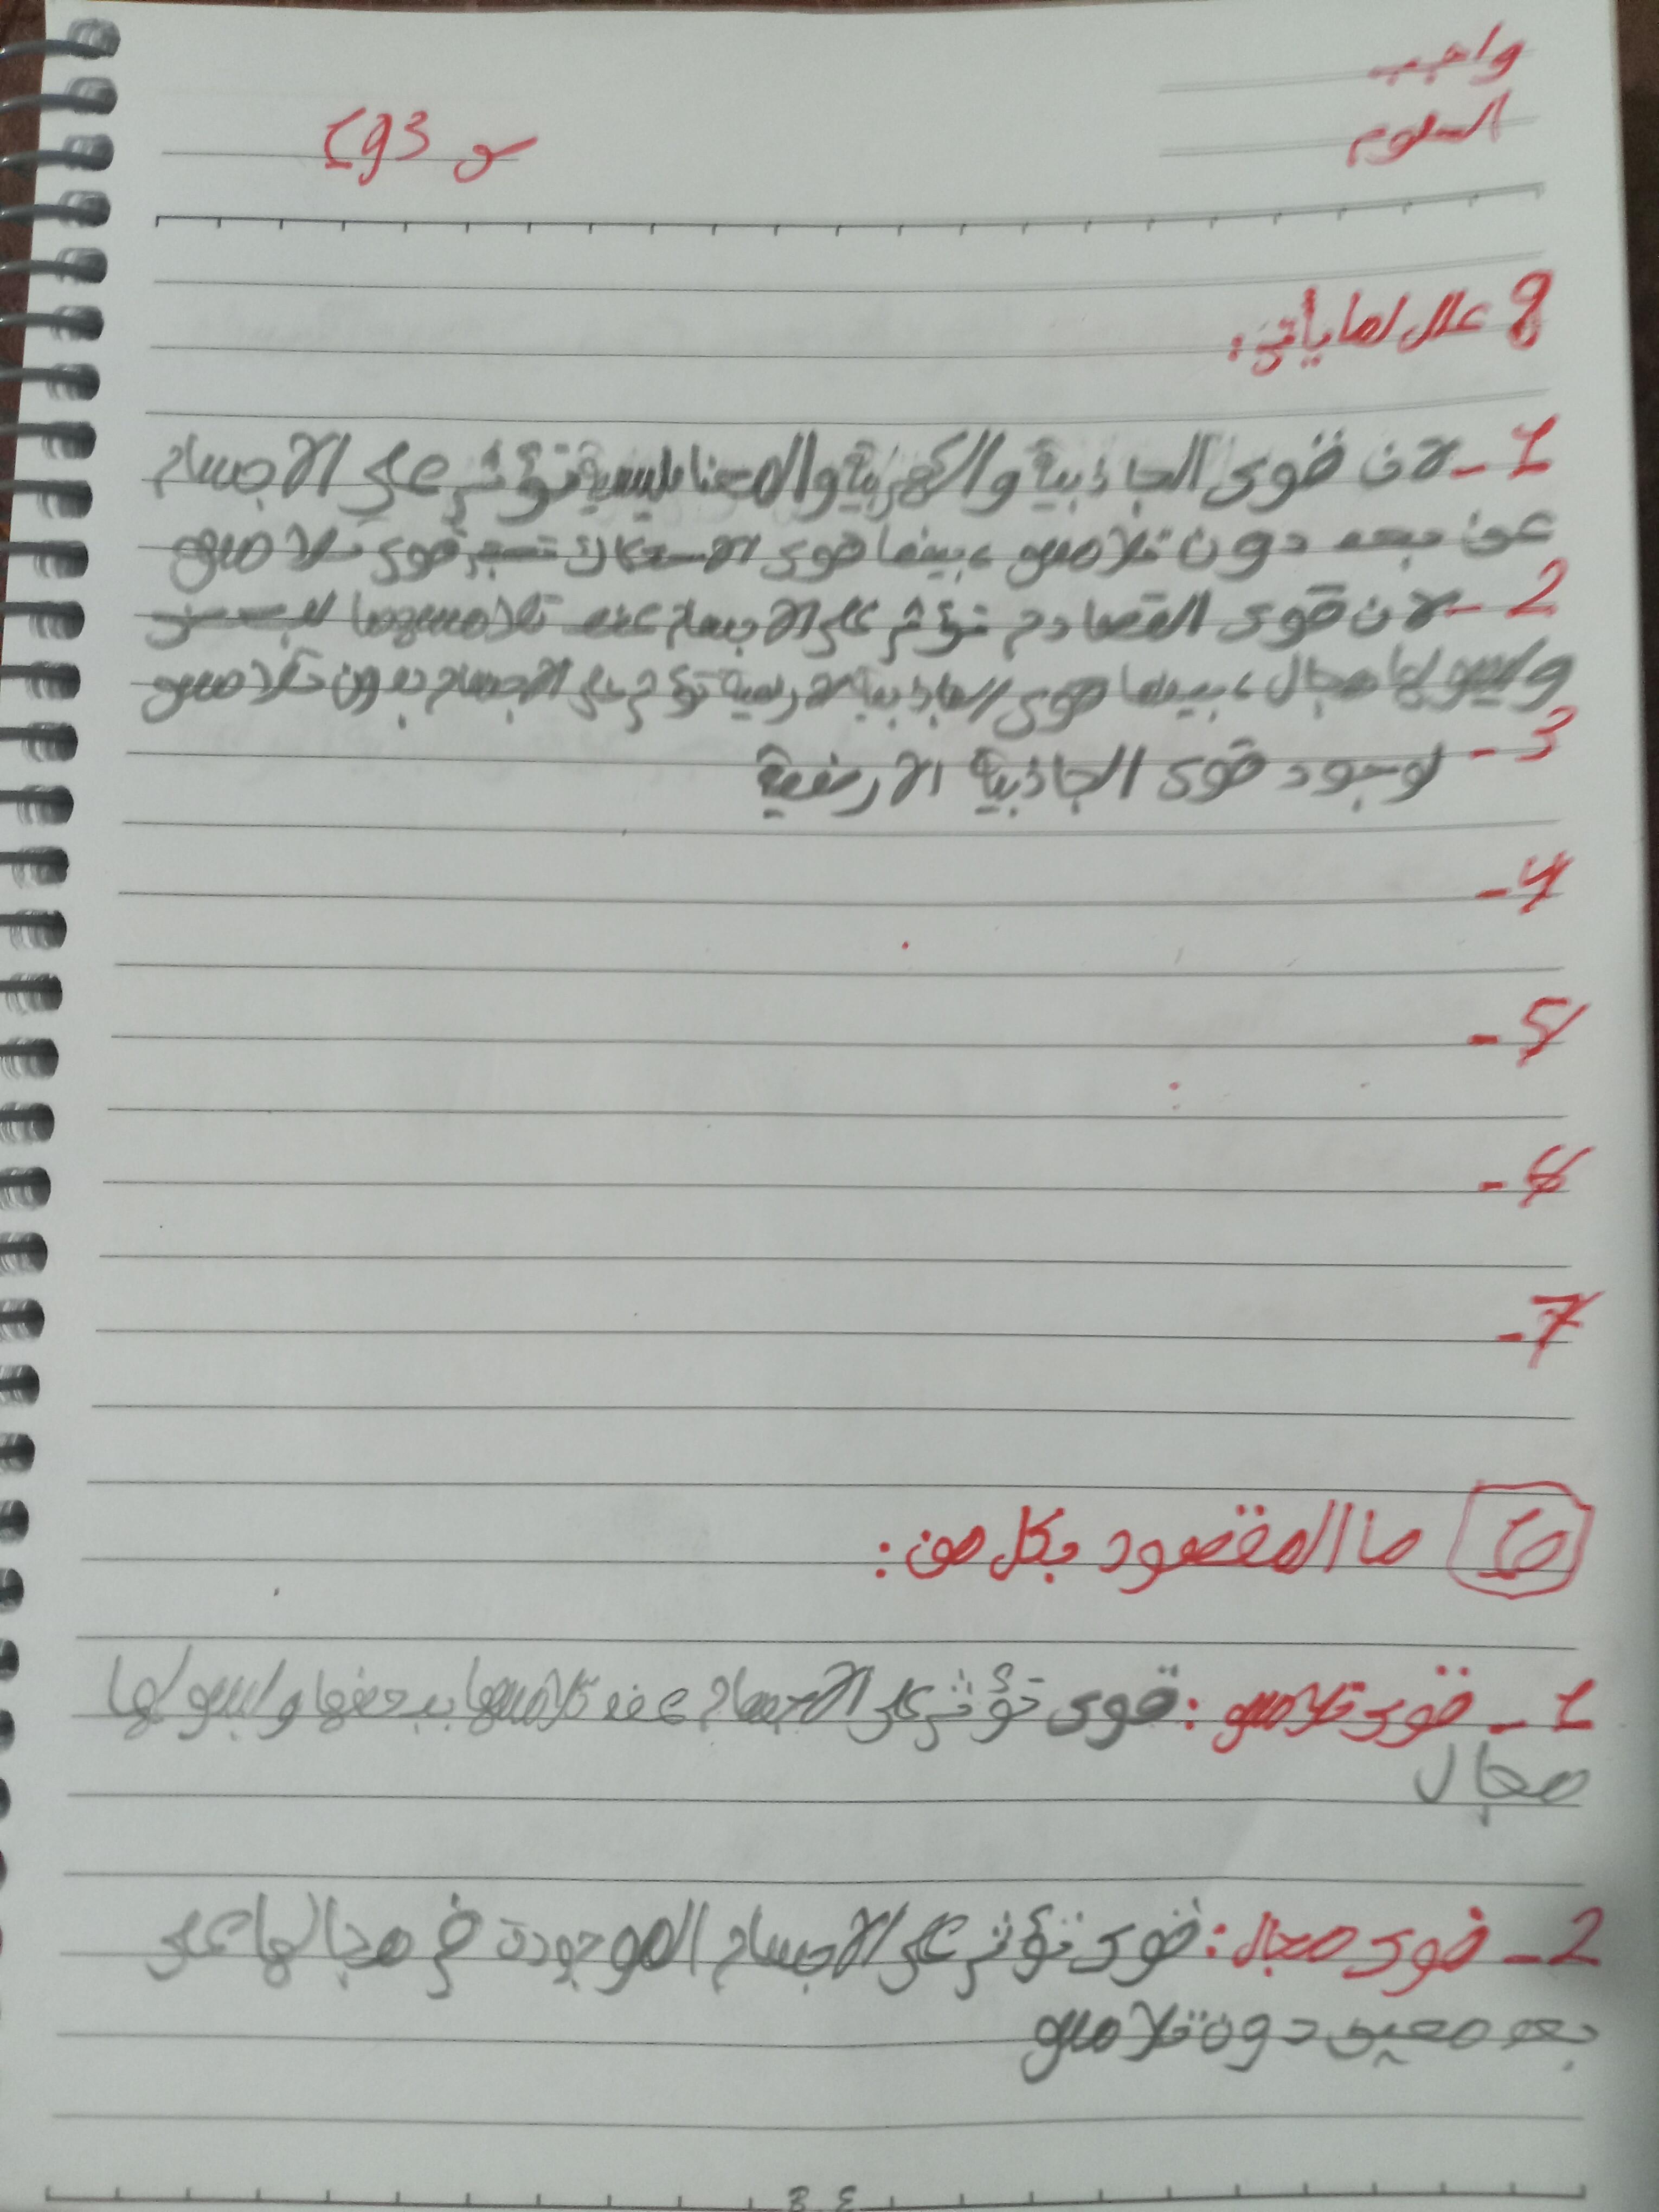 واجب
العلوم
س 3و2
9 علل لما يأتي:
1- لان قوى الجاذبية والكهربية والمغناطيسية تؤثر على الاجسام
عن بعد دون تلامس، بينما قوى الاحتكاك تعتبر قوى تلامس
2- لان قوى التصادم تؤثر على الاجسام عند تلامسها
وليس لها مجال، بينما قوى الجاذبية الارضية تؤثر على الاجسام بدون تلامس
3- لوجود قوى الجاذبية الارضية
4-
5-
6-
7-
10 ما المقصود بكل من:
1- قوى تلامس: قوى تؤثر على الاجسام عند تلامسها ببعضها وليس لها
مجال
2- قوى مجال: قوى تؤثر على الاجسام الموجودة في مجالها على
بعد معين دون تلامس